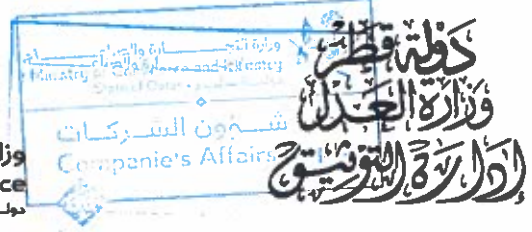 دولة قطر
وزارة العدل
إدارة التوثيق
وزارة التجارة والصناعة
Ministry of Commerce and Industry
State of Qatar
شئون الشركات
Companie's Affairs
وزا
ce
دولـ